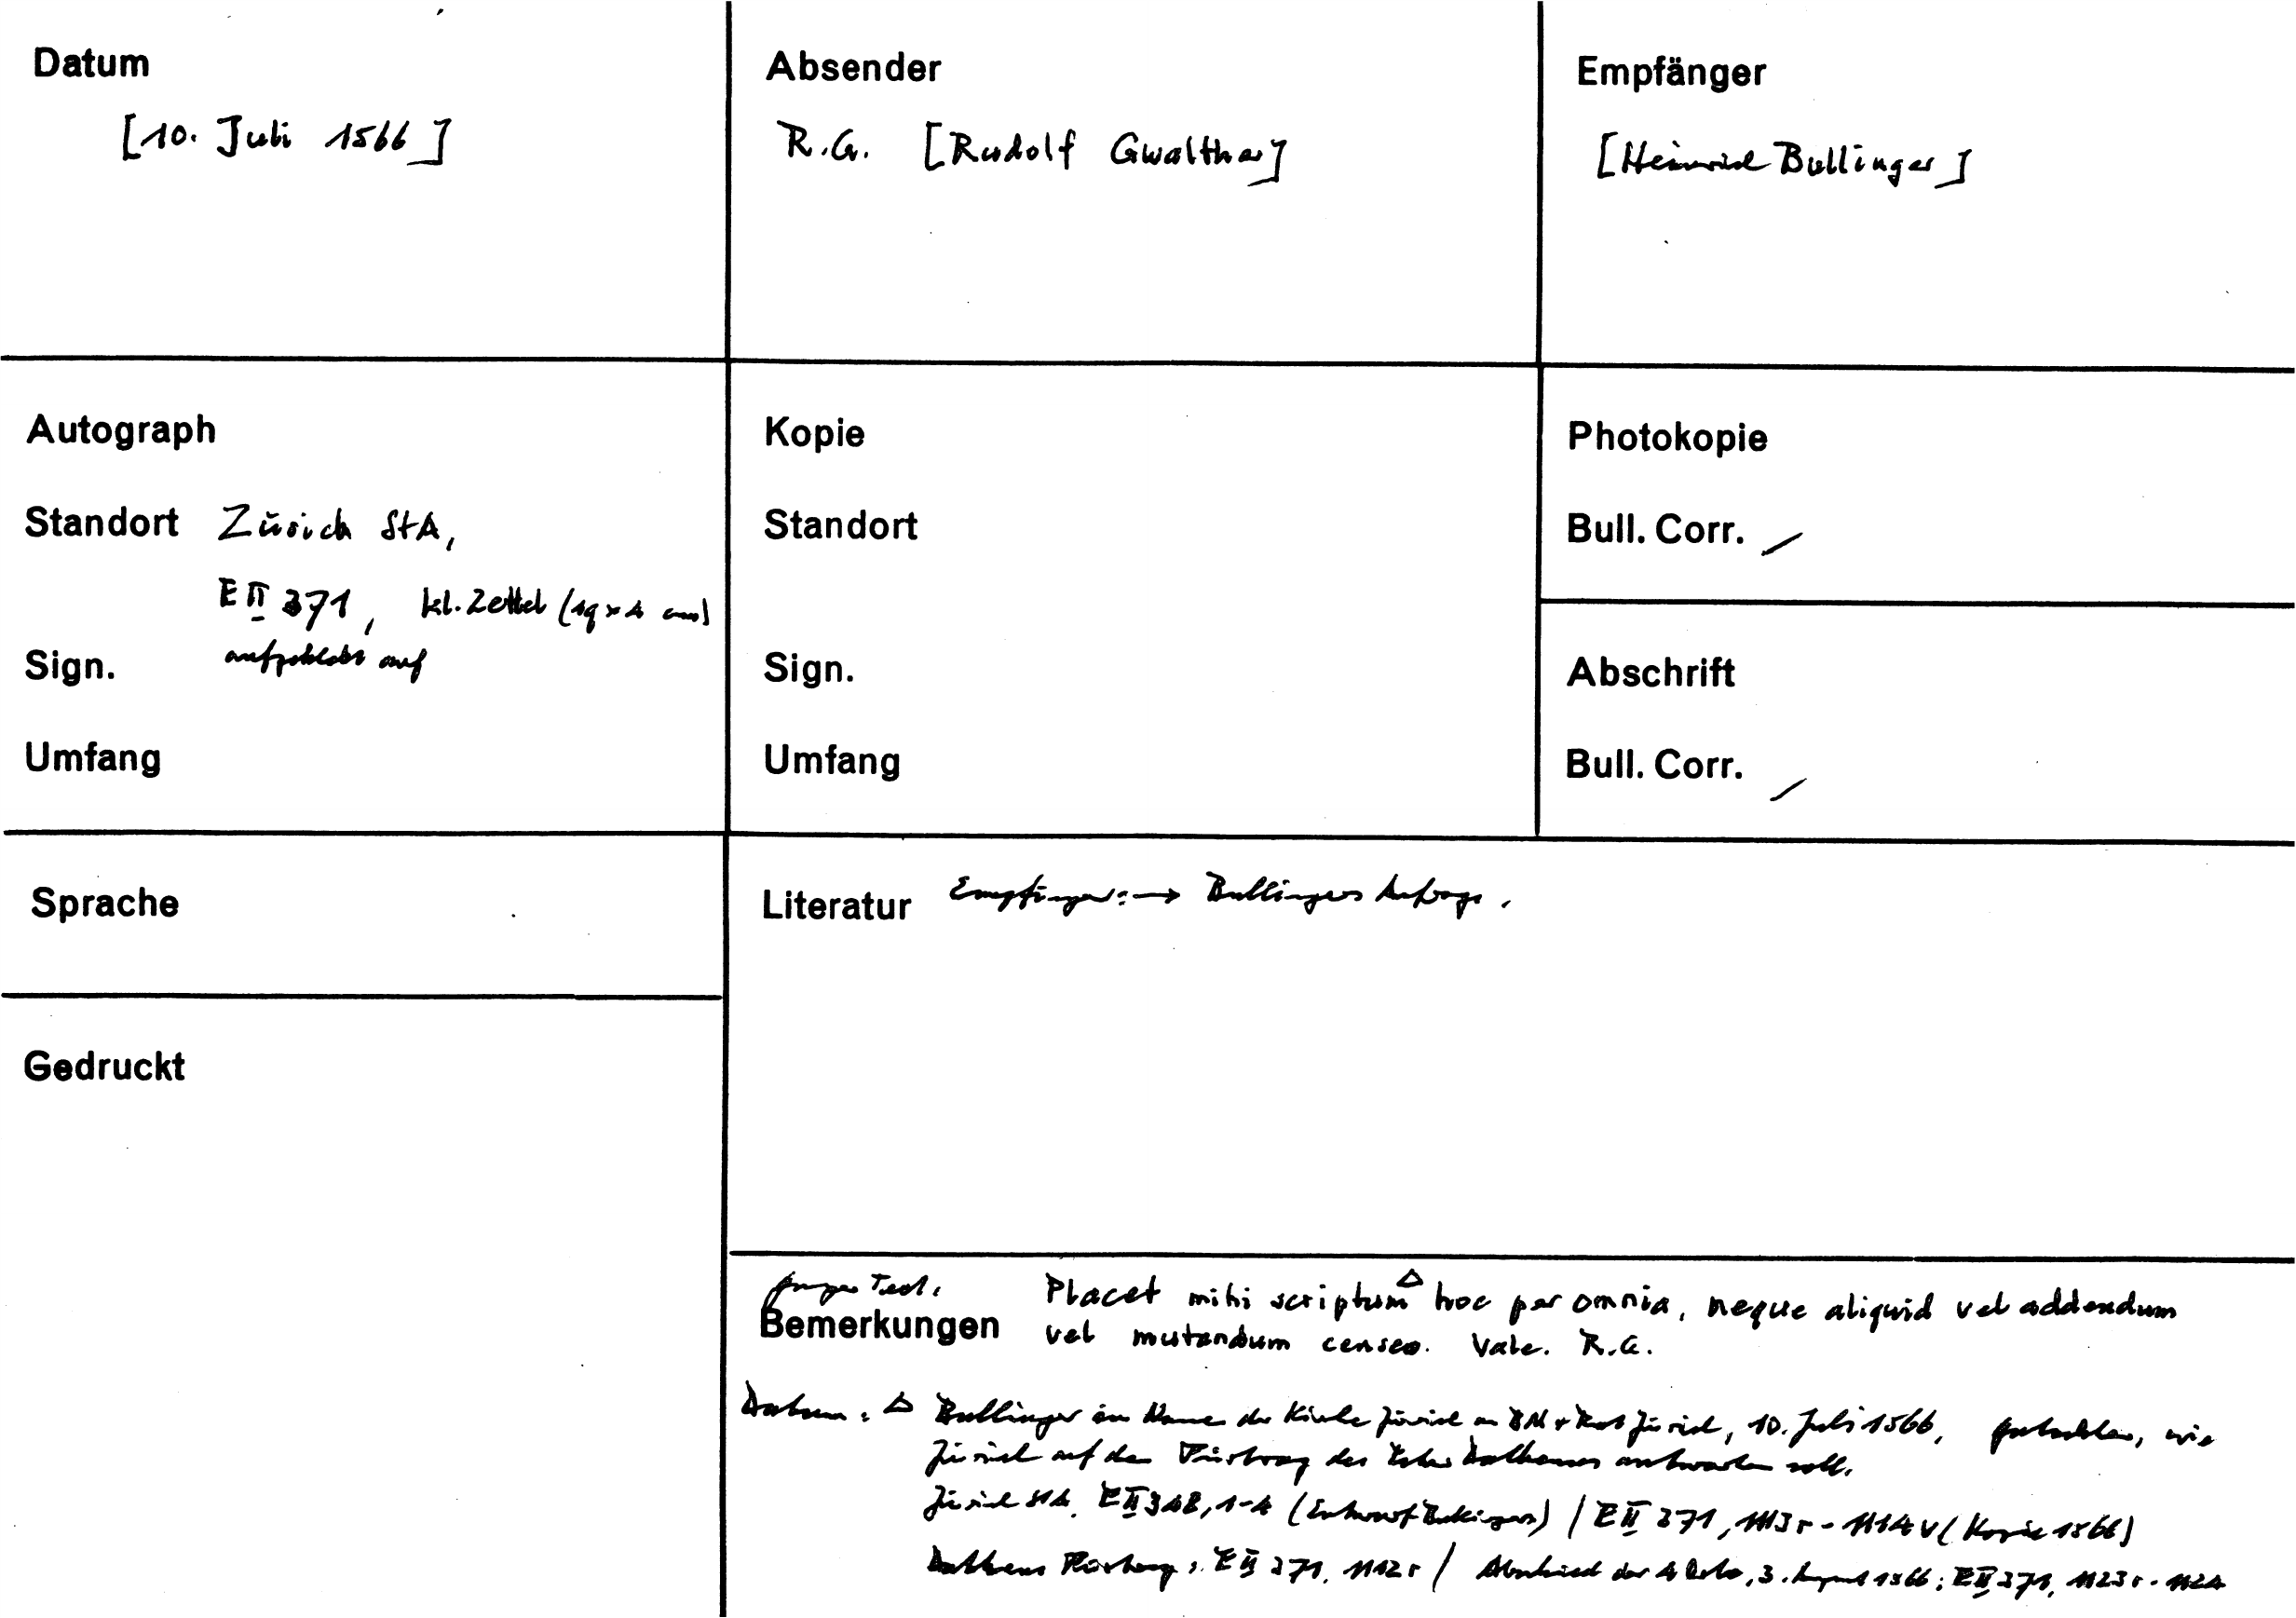 Datum
[10. Juli 1566]
Absender
R.G. [Rudolf Gwalther]
Empfänger
[Heinrich Bullinger]
Autograph
Standort Zürich StA,
E II 371, kl. Zettel (19 x 4 cm)
Sign. aufgeklebt auf
Umfang
Kopie
Standort
Sign.
Umfang
Photokopie
Bull. Corr. /
Abschrift
Bull. Corr. /
Sprache
Gedruckt
Literatur Empfänger: → Bullingers Anfrage.
ganzer Text:
Bemerkungen
Placet mihi scriptum △ hoc per omnia, neque aliquid vel addendum
vel mutandum censeo. Vale. R.G.
Datum: △ Bullinger im Name der Kirche Zürich an BM + Rat Zürich, 10. Juli 1566, Gutachten, wie
Zürich auf den Fürtrag des Dathenus antworten soll.
Zürich StA, E II 348, 1-4 (Entwurf Bullingers) / E II 371, 1113r - 1114v (Kopie 1566)
Dathens Fürtrag: E II 371, 1112r / Abschied der 4 Orte, 3. August 1566: E II 371, 1123r - 1124